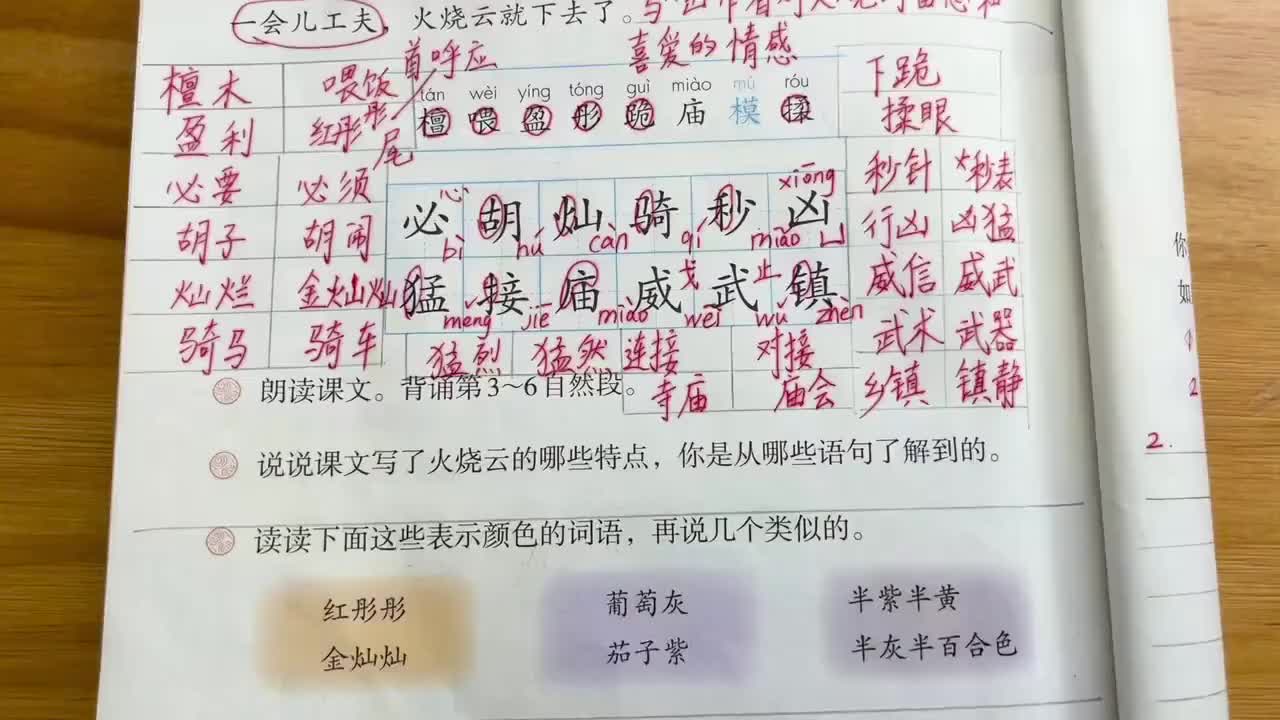 一会儿工夫，火烧云就下去了。
喜爱的情感
首呼应
尾
檀木 喂饭 下跪
盈利 红彤彤 揉眼
tán wèi yíng tóng guì miào mú róu
檀 喂 盈 彤 跪 庙 模 揉
必要 必须 秒针 秒表
心 xiōng
必 胡 灿 骑 秒 凶
bì hú càn qí miǎo 凵
胡子 胡闹 行凶 凶猛
灿烂 金灿灿 威信 威武
戈 止
猛 接 庙 威 武 镇
měng jiē miào wēi wǔ zhèn
骑马 骑车 猛烈 猛然 连接 对接 武术 武器
寺庙 庙会 乡镇 镇静
朗读课文。背诵第3~6自然段。
说说课文写了火烧云的哪些特点，你是从哪些语句了解到的。
读读下面这些表示颜色的词语，再说几个类似的。
红彤彤 葡萄灰 半紫半黄
金灿灿 茄子紫 半灰半百合色
你
如
2.